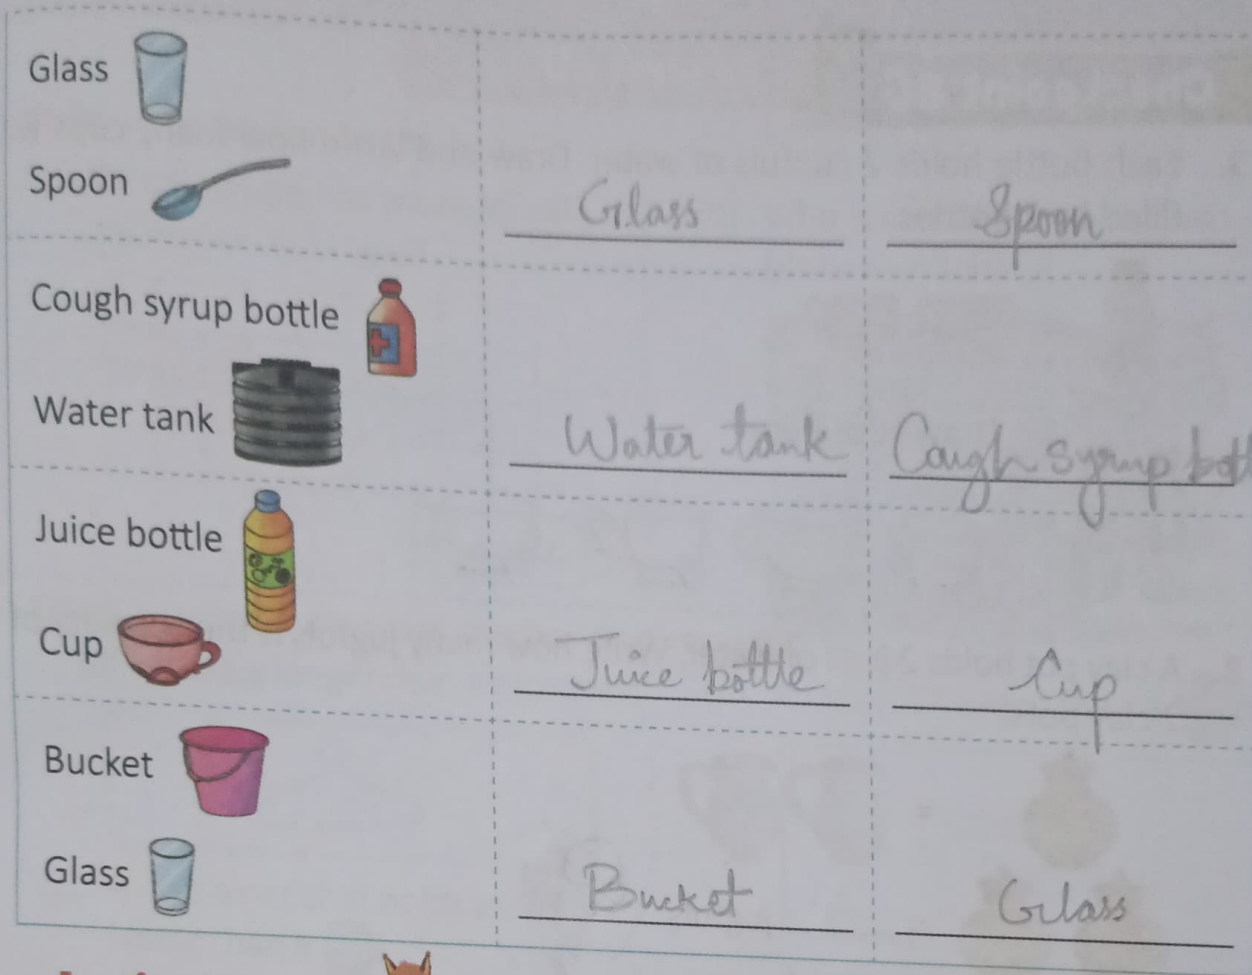 Glass
Spoon
Glass
Spoon
Cough syrup bottle
Water tank
Water tank
Cough syrup
Juice bottle
Cup
Juice bottle
Cup
Bucket
Glass
Bucket
Glass